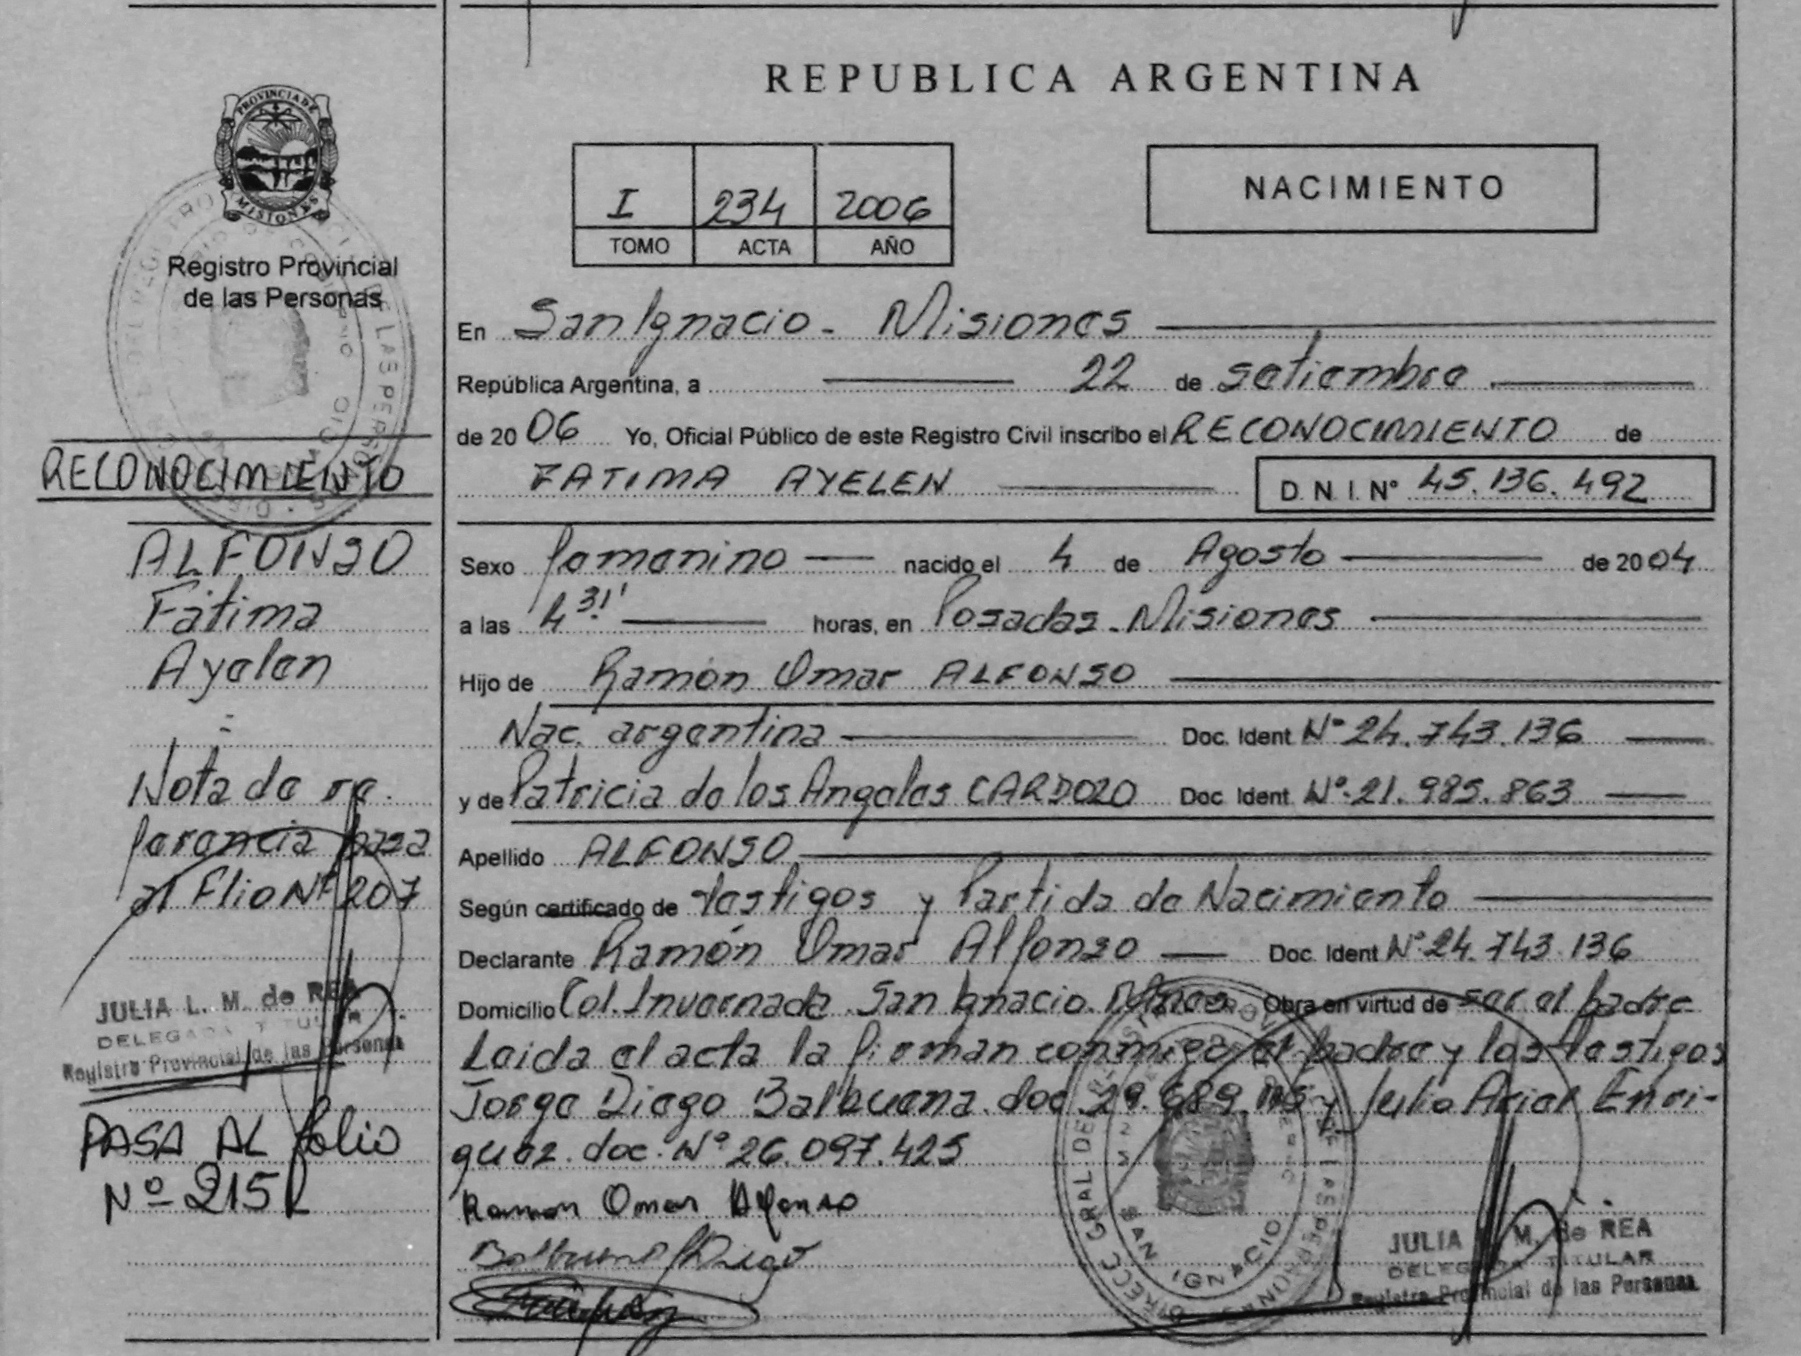 REPUBLICA ARGENTINA
PROVINCIA DE
MISIONES
Registro Provincial
de las Personas
I 234 2006
TOMO ACTA AÑO
NACIMIENTO
En San Ignacio - Misiones
República Argentina, a 22 de setiembre
de 2006 Yo, Oficial Público de este Registro Civil inscribo el RECONOCIMIENTO de
FATIMA AYELEN D.N.I. Nº 45.136.492
Sexo femenino nacido el 4 de Agosto de 2004
a las 4 31' horas, en Posadas - Misiones
Hijo de Ramón Omar ALFONSO
Nac. argentina Doc. Ident. Nº 24.743.136
y de Patricia de los Angeles CARDOZO Doc. Ident. Nº 21.985.863
Apellido ALFONSO
Según certificado de testigos y Partida de Nacimiento
Declarante Ramón Omar Alfonso Doc. Ident Nº 24.743.136
Domicilio Col. Invernada San Ignacio. Mnes Obra en virtud de ser el padre
Leida el acta la firman conmigo el padre y los testigos
Jorge Diego Balbuena doc. 29.689. y Julio Ariel Enri-
quez. doc. Nº 26.097.425
Ramon Omar Alfonso
Balbuena Diego
SAN IGNACIO
JULIA L. M. de REA
DELEGADA TITULAR
Registro Provincial de las Personas
RECONOCIMIENTO
ALFONSO
Fátima
Ayelen
Nota de re-
ferencia pasa
al Flio Nº 207
JULIA L. M. de REA
DELEGADA TITULAR
Registro Provincial de las Personas
PASA AL folio
Nº 215